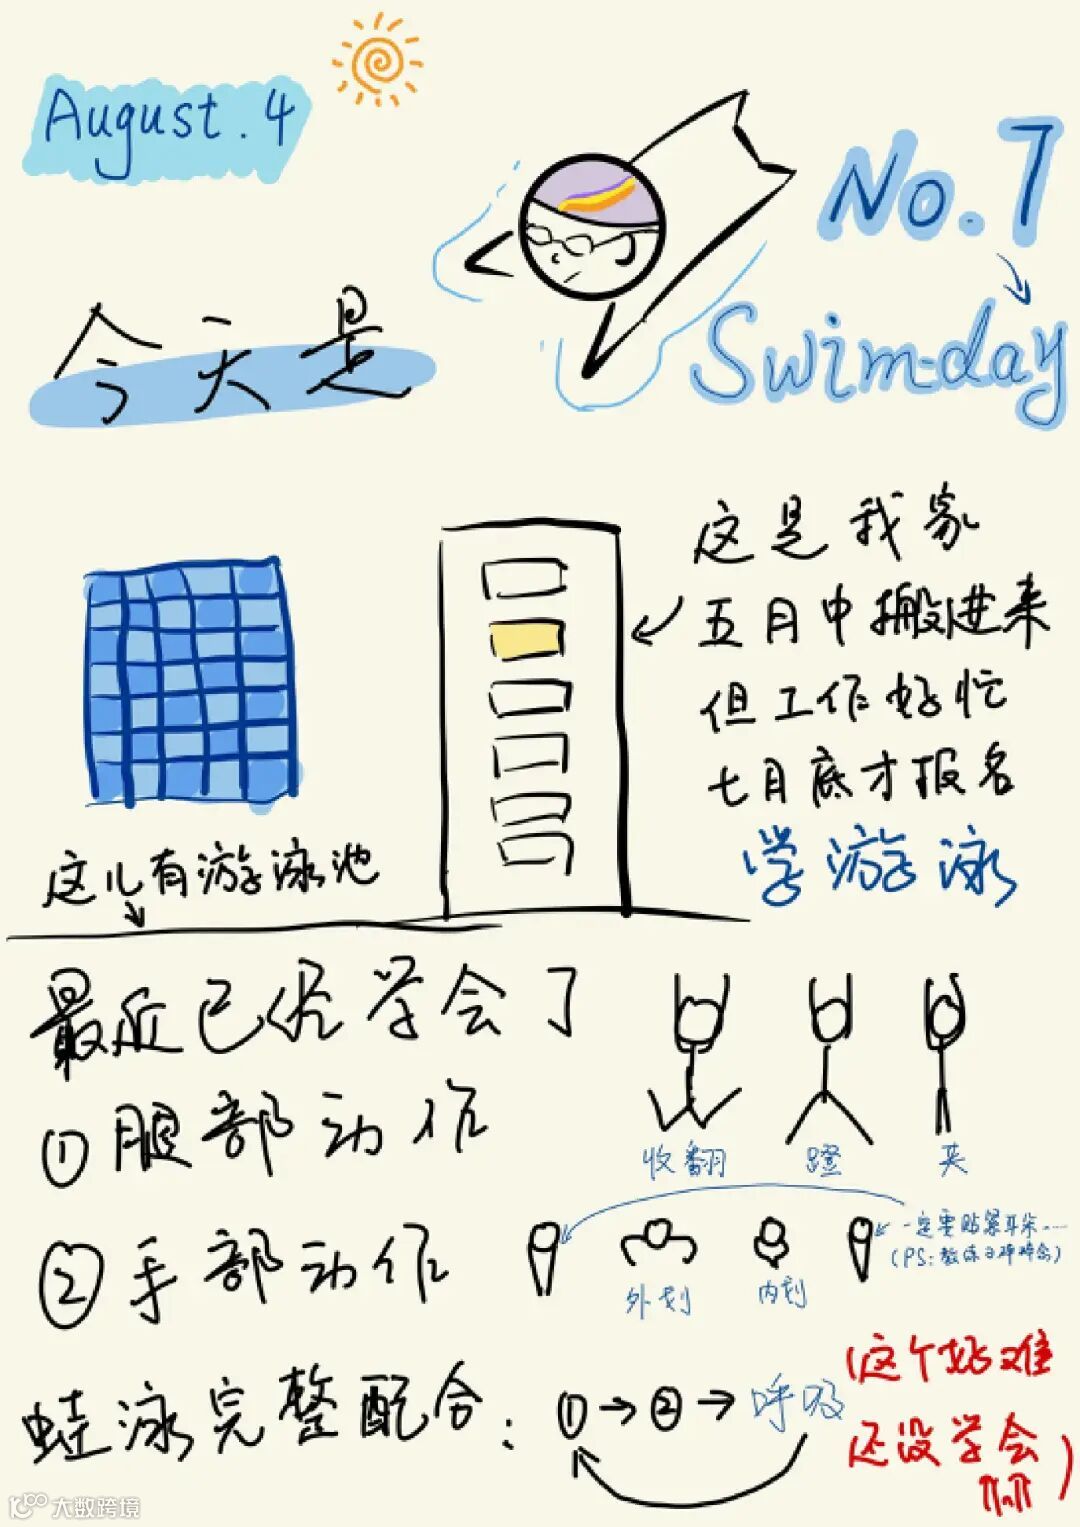 August.4
No.7
Swim-day
今天是
这是我家
五月中搬进来
但工作好忙
七月底才报名
学游泳
这儿有游泳池
最近已经学会了
①腿部动作
收翻
蹬
夹
②手部动作
外划
内划
一定要贴紧耳朵……
(PS:教练日碎碎念)
蛙泳完整配合:①→②→呼吸
(这个好难
还没学会
)
大数跨境